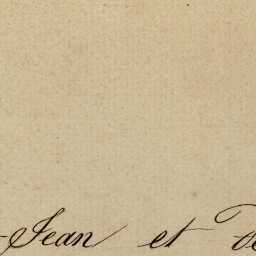 -Jean et